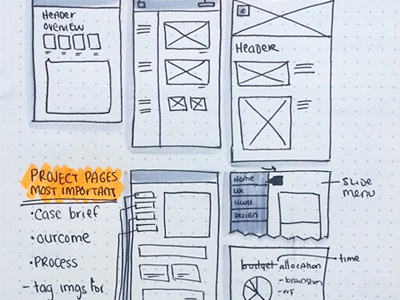 HEADER
OVERVIEW
HEADER
PROJECT PAGES
MOST IMPORTANT
• Case brief
• outcome
• PROCESS
- tag imgs for
Home
UX
DESIGN
SLIDE
MENU
time
budget allocation